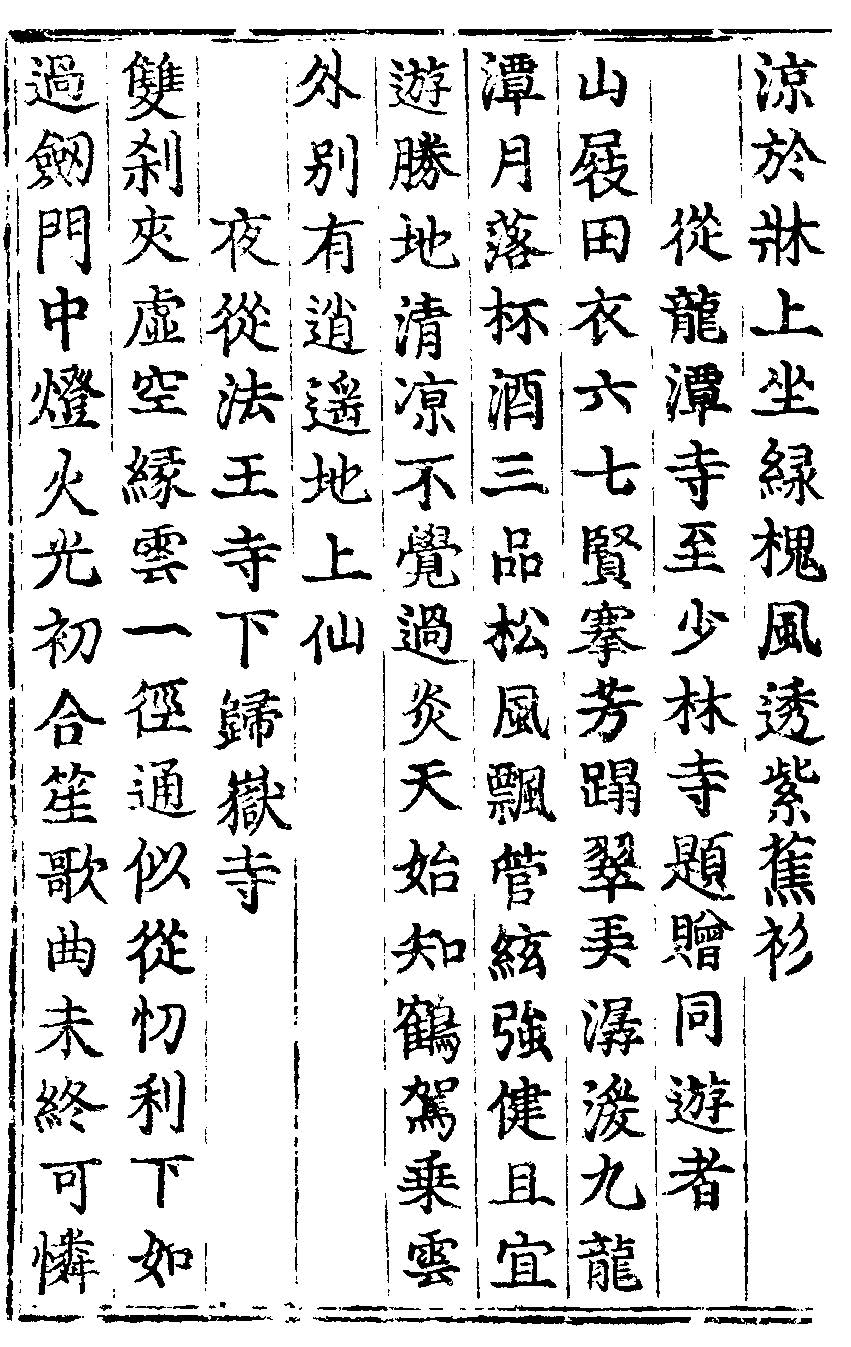 涼於牀上坐緑槐風透紫蕉衫
從龍潭寺至少林寺題贈同遊者
山屐田衣六七賢搴芳蹋翠弄潺湲九龍
潭月落杯酒三品松風飄管絃強健且宜
遊勝地清凉不覺過炎天始知鶴駕乗雲
外别有逍遥地上仙
夜從法王寺下歸嶽寺
雙刹夾虚空縁雲一徑通似從忉利下如
過劒門中燈火光初合笙歌曲未終可憐